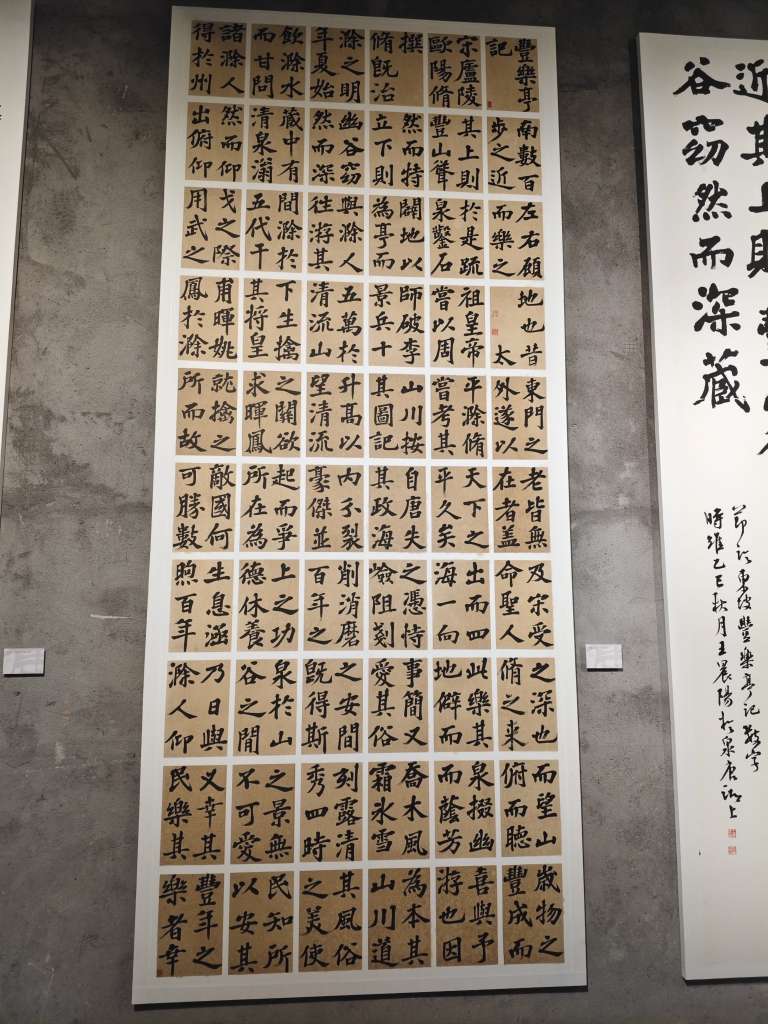 豐樂亭
記
宗廬陵
歐陽脩
撰
脩既治
滁之明
年夏始
飲滁水
而甘問
諸滁人
得於州
南數百
步之近
其上則
豐山聳
然而特
立下則
幽谷窈
然而深
藏中有
清泉滃
然而仰
出俯仰
左右顧
而樂之
於是疏
泉鑿石
闢地以
為亭而
與滁人
往游其
間滁於
五代干
戈之際
用武之
地也昔
太
祖皇帝
嘗以周
師破李
景兵十
五萬於
清流山
下生擒
其將皇
甫暉姚
鳳於滁
東門之
外遂以
平滁脩
嘗考其
山川按
其圖記
升高以
望清流
之關欲
求暉鳳
就擒之
所而故
老皆無
在者蓋
天下之
平久矣
自唐失
其政海
內分裂
豪傑並
起而爭
所在為
敵國何
可勝數
及宗受
命聖人
出而四
海一向
之憑恃
險阻剗
削消磨
百年之
上之功
德休養
生息涵
煦百年
之深也
脩之来
此樂其
地僻而
事簡又
愛其俗
之安閒
既得斯
泉於山
谷之間
乃日與
滁人仰
而望山
俯而聽
泉掇幽
而蔭芳
喬木風
霜氷雪
刻露清
秀四時
之景無
不可愛
又幸其
民樂其
歲物之
豐成而
喜與予
游也因
為本其
山川道
其風俗
之美使
民知所
以安其
豐年之
樂者幸
近其上則
谷窈然而深藏
節臨東坡豐樂亭記數字
時維乙巳秋月王晨陽於泉唐湖上